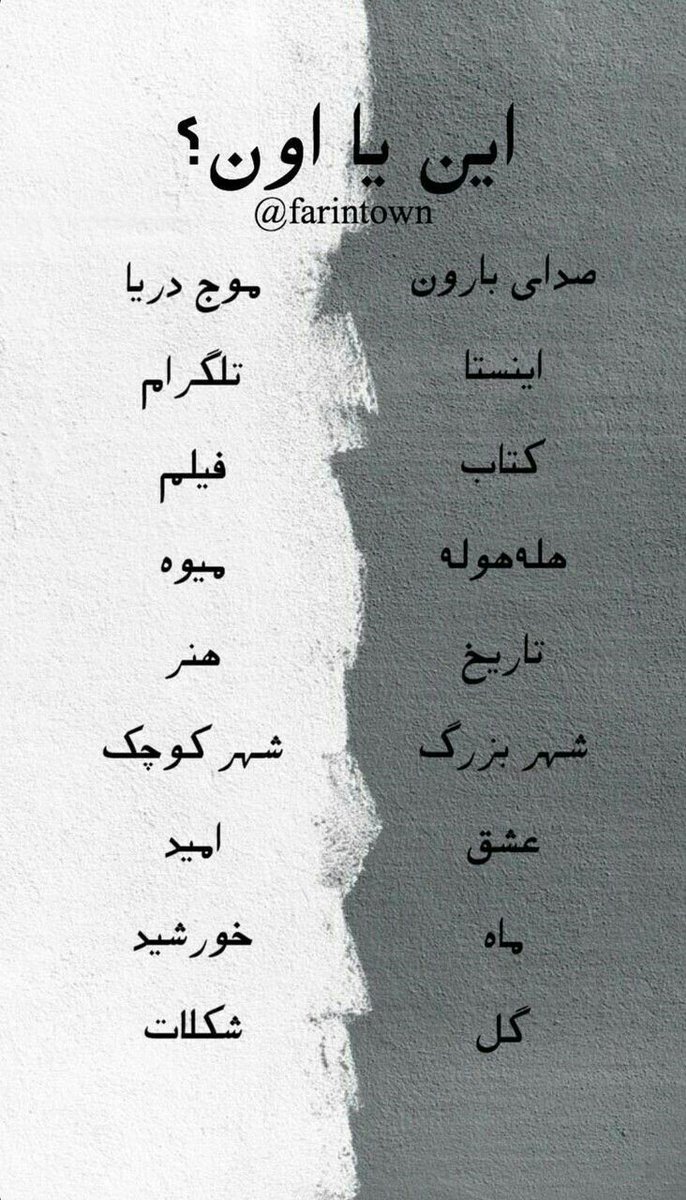 این یا اون؟
@farintown
صدای بارون موج دریا
اینستا تلگرام
کتاب فیلم
هله‌هوله میوه
تاریخ هنر
شهر بزرگ شهر کوچک
عشق امید
ماه خورشید
گل شکلات